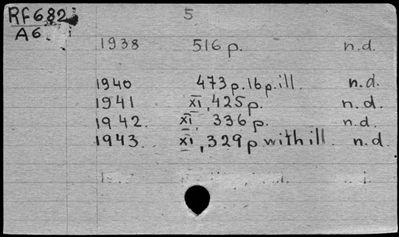 RF682 5
A6
1938 516 p. n.d.
1940 473 p. 16 p. ill. n.d.
1941 xi, 425 p. n.d.
1942. xi 336 p. n.d.
1943 xi, 329 p with ill. n.d.